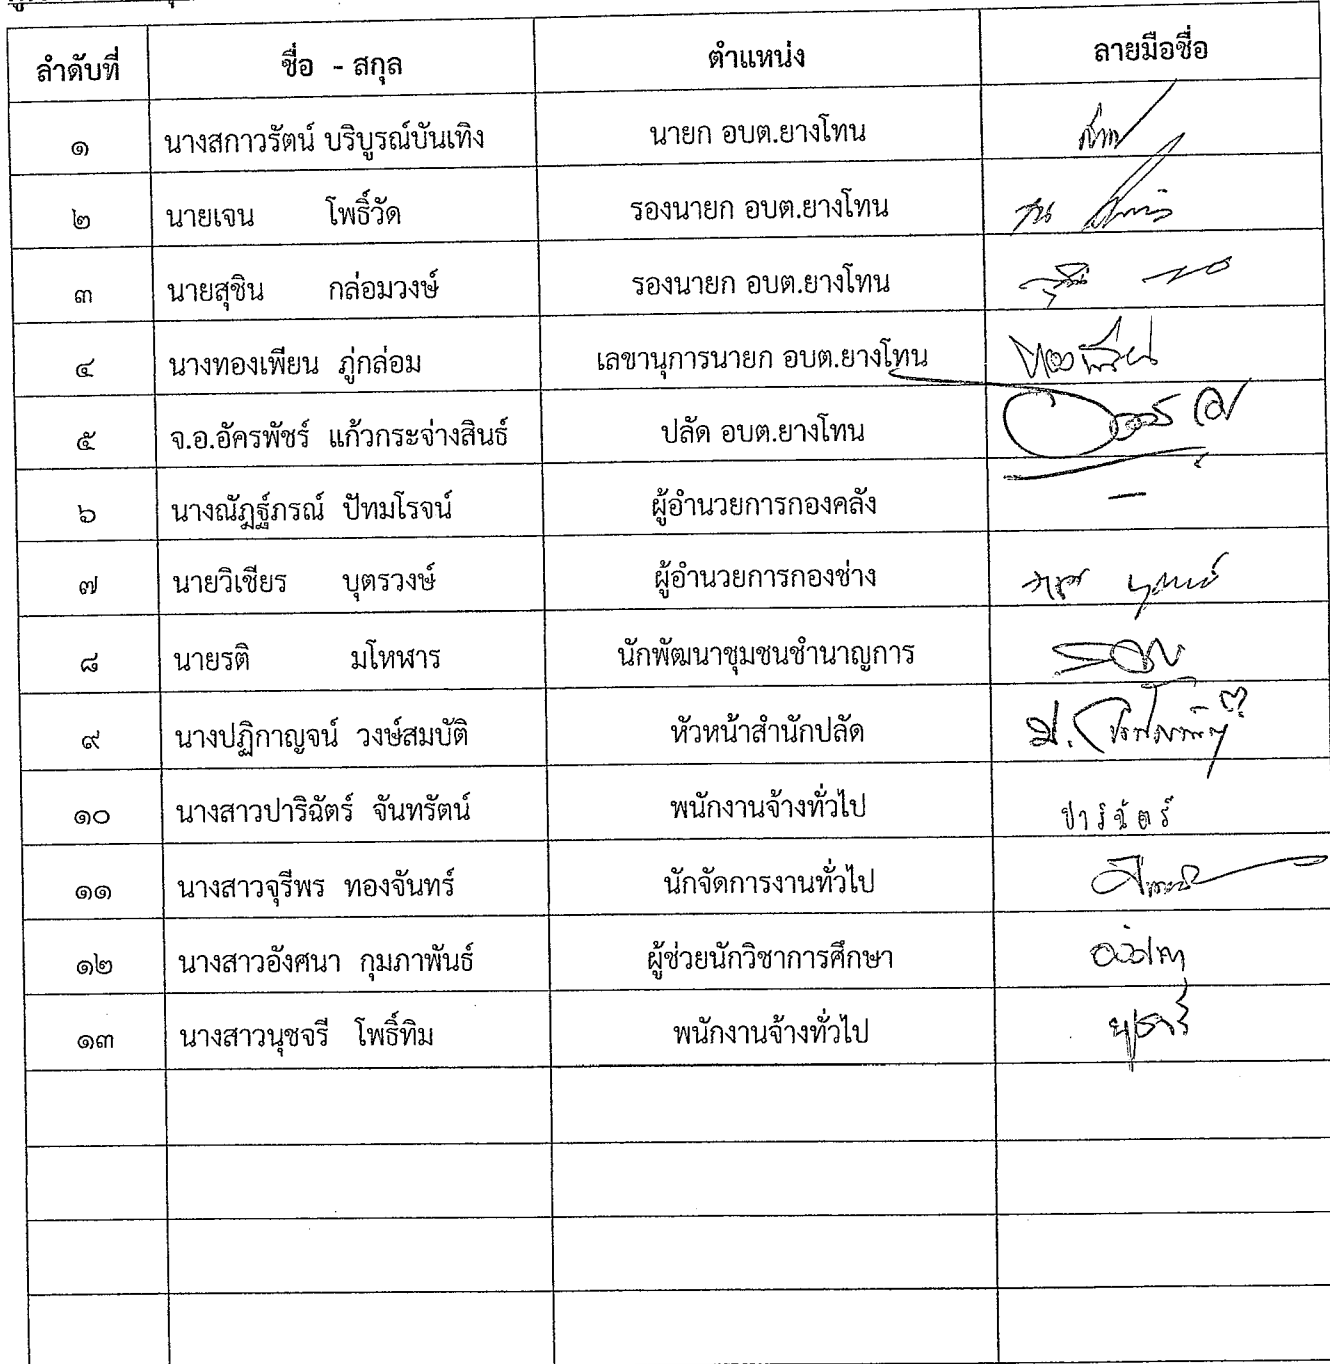 ลำดับที่ ชื่อ - สกุล ตำแหน่ง ลายมือชื่อ
๑ นางสกาวรัตน์ บริบูรณ์บันเทิง นายก อบต.ยางโทน
๒ นายเจน โพธิ์วัด รองนายก อบต.ยางโทน
๓ นายสุชิน กล่อมวงษ์ รองนายก อบต.ยางโทน
๔ นางทองเพียน ภู่กล่อม เลขานุการนายก อบต.ยางโทน ทองเพียน
๕ จ.อ.อัครพัชร์ แก้วกระจ่างสินธ์ ปลัด อบต.ยางโทน
๖ นางณัฎฐ์ภรณ์ ปัทมโรจน์ ผู้อำนวยการกองคลัง -
๗ นายวิเชียร บุตรวงษ์ ผู้อำนวยการกองช่าง
๘ นายรติ มโหฬาร นักพัฒนาชุมชนชำนาญการ
๙ นางปฏิกาญจน์ วงษ์สมบัติ หัวหน้าสำนักปลัด
๑๐ นางสาวปาริฉัตร์ จันทรัตน์ พนักงานจ้างทั่วไป ปาริฉัตร์
๑๑ นางสาวจุรีพร ทองจันทร์ นักจัดการงานทั่วไป
๑๒ นางสาวอังศนา กุมภาพันธ์ ผู้ช่วยนักวิชาการศึกษา
๑๓ นางสาวนุชจรี โพธิ์ทิม พนักงานจ้างทั่วไป นุชจรี